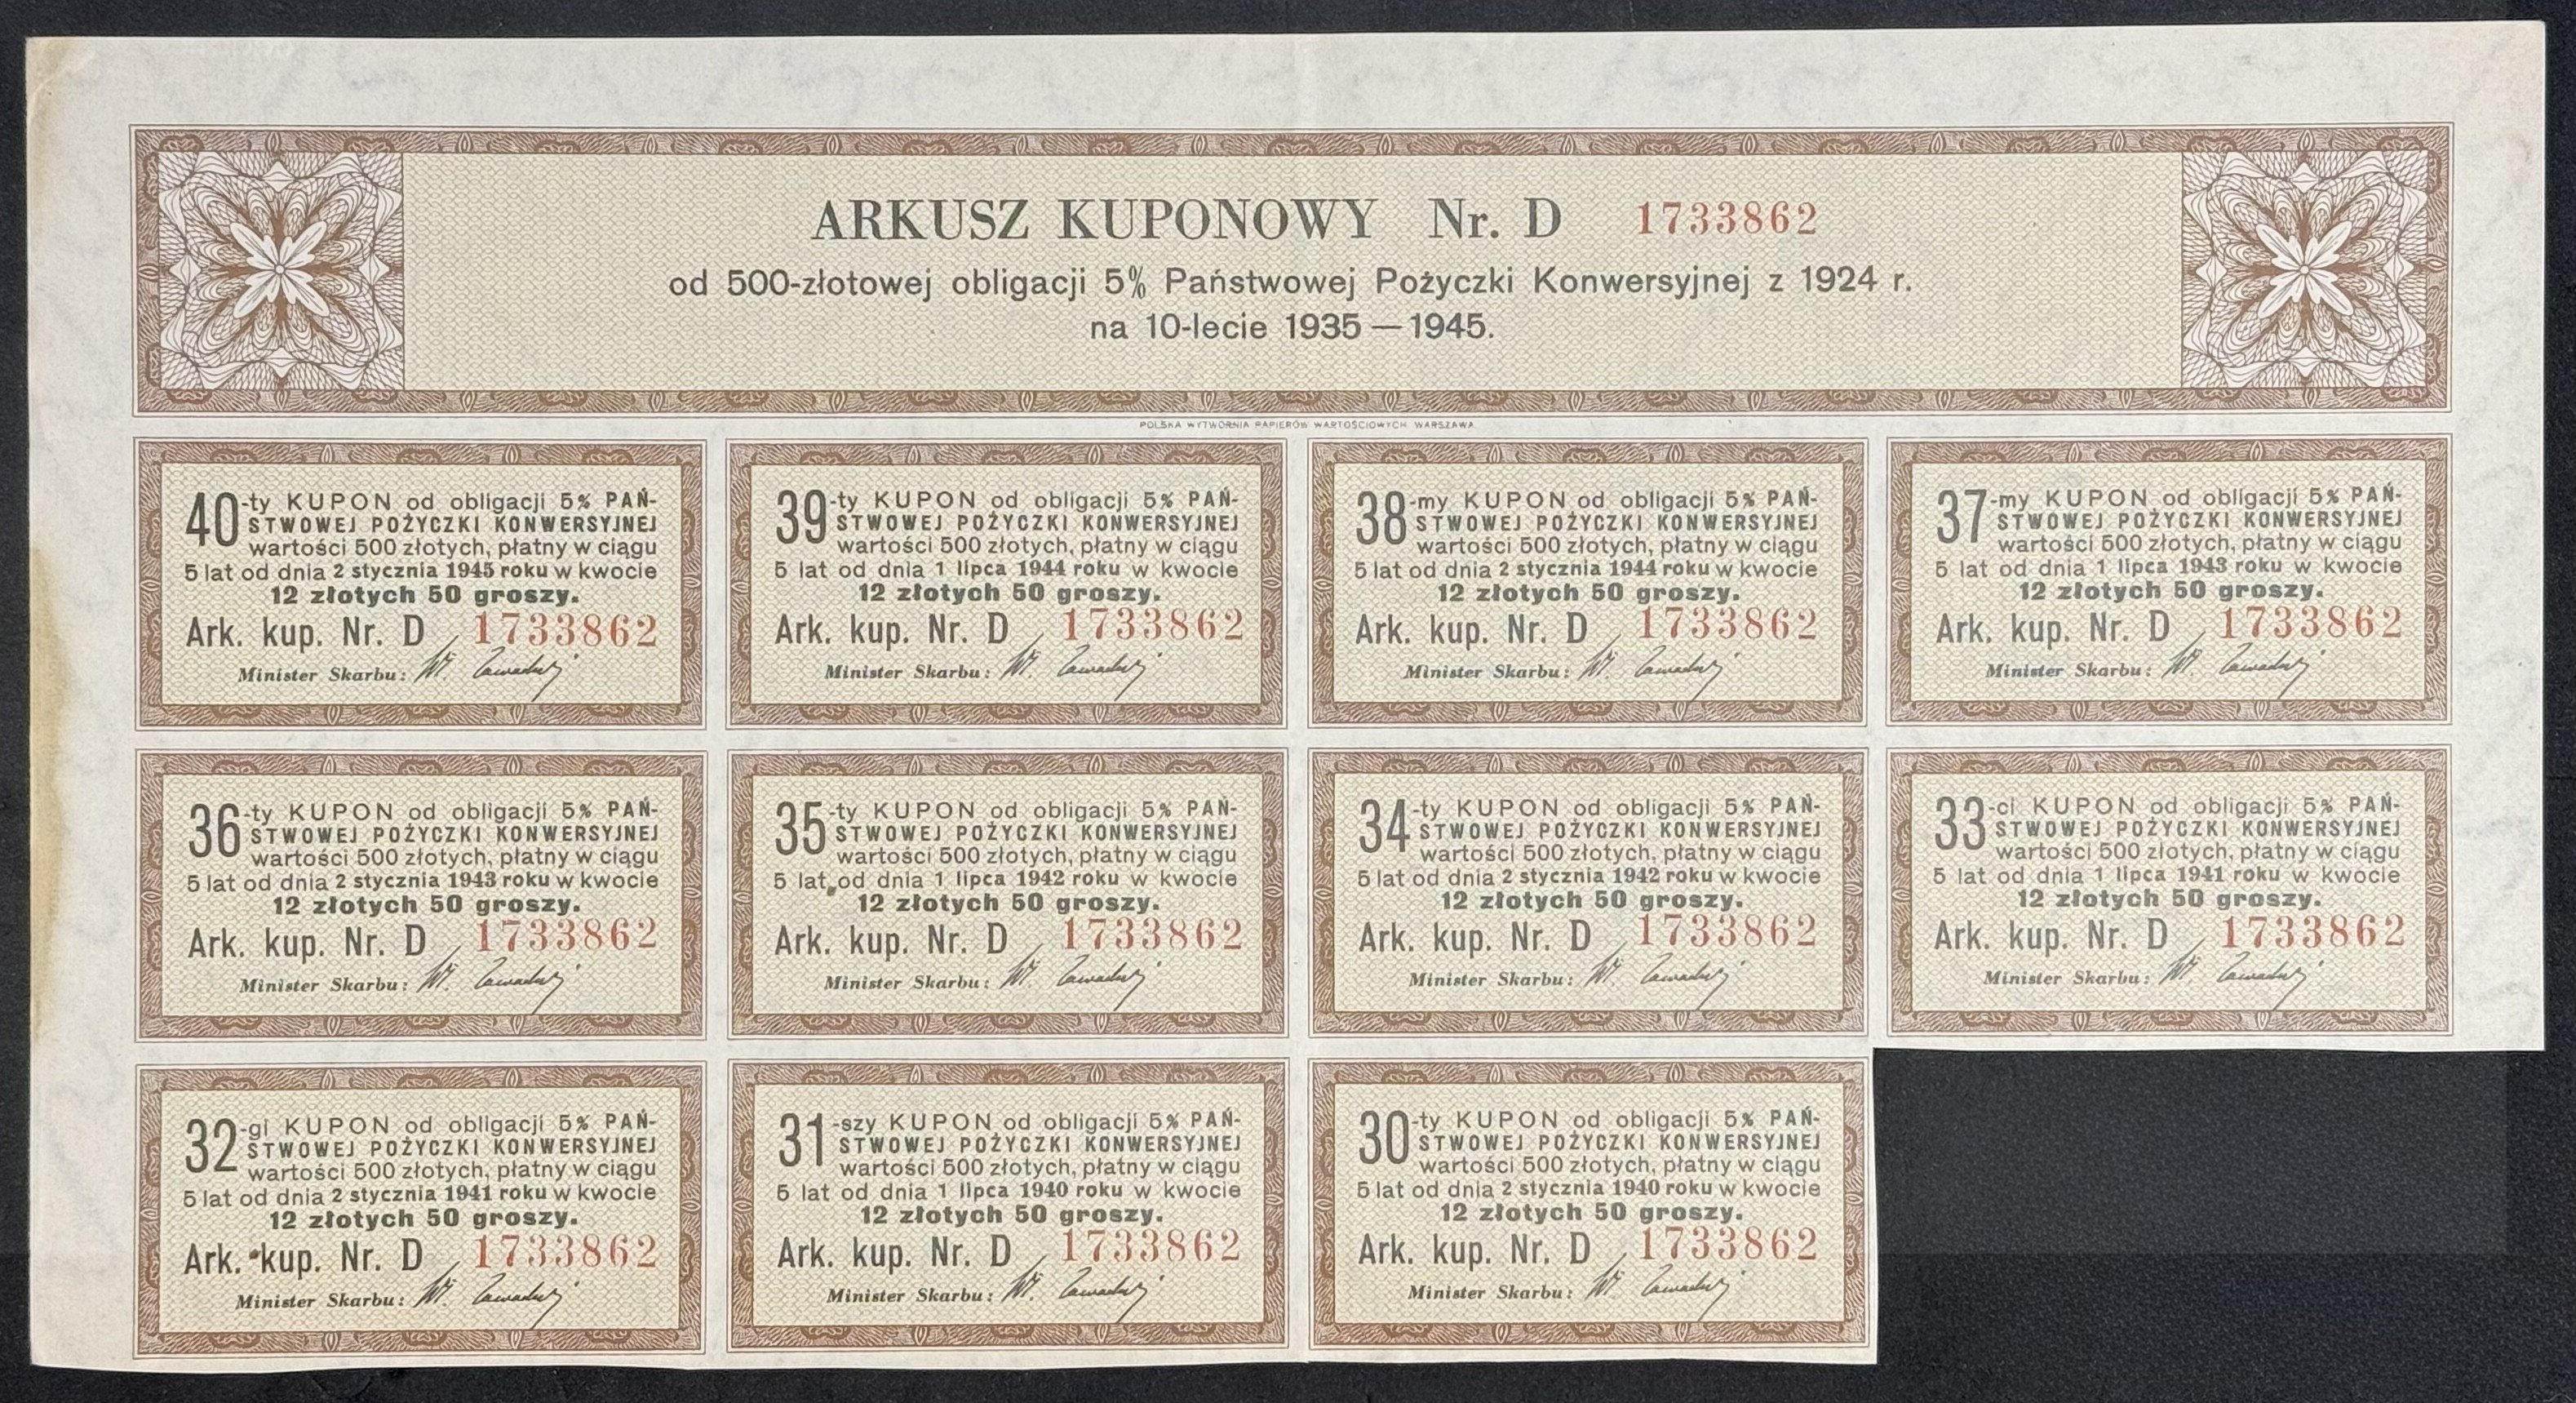 ARKUSZ KUPONOWY Nr. D 1733862
od 500-złotowej obligacji 5% Państwowej Pożyczki Konwersyjnej z 1924 r.
na 10-lecie 1935 — 1945.
POLSKA WYTWÓRNIA PAPIERÓW WARTOŚCIOWYCH WARSZAWA
40-ty KUPON od obligacji 5% PAŃ-
STWOWEJ POŻYCZKI KONWERSYJNEJ
wartości 500 złotych, płatny w ciągu
5 lat od dnia 2 stycznia 1945 roku w kwocie
12 złotych 50 groszy.
Ark. kup. Nr. D 1733862
Minister Skarbu:
39-ty KUPON od obligacji 5% PAŃ-
STWOWEJ POŻYCZKI KONWERSYJNEJ
wartości 500 złotych, płatny w ciągu
5 lat od dnia 1 lipca 1944 roku w kwocie
12 złotych 50 groszy.
Ark. kup. Nr. D 1733862
Minister Skarbu:
38-my KUPON od obligacji 5% PAŃ-
STWOWEJ POŻYCZKI KONWERSYJNEJ
wartości 500 złotych, płatny w ciągu
5 lat od dnia 2 stycznia 1944 roku w kwocie
12 złotych 50 groszy.
Ark. kup. Nr. D 1733862
Minister Skarbu:
37-my KUPON od obligacji 5% PAŃ-
STWOWEJ POŻYCZKI KONWERSYJNEJ
wartości 500 złotych, płatny w ciągu
5 lat od dnia 1 lipca 1943 roku w kwocie
12 złotych 50 groszy.
Ark. kup. Nr. D 1733862
Minister Skarbu:
36-ty KUPON od obligacji 5% PAŃ-
STWOWEJ POŻYCZKI KONWERSYJNEJ
wartości 500 złotych, płatny w ciągu
5 lat od dnia 2 stycznia 1943 roku w kwocie
12 złotych 50 groszy.
Ark. kup. Nr. D 1733862
Minister Skarbu:
35-ty KUPON od obligacji 5% PAŃ-
STWOWEJ POŻYCZKI KONWERSYJNEJ
wartości 500 złotych, płatny w ciągu
5 lat od dnia 1 lipca 1942 roku w kwocie
12 złotych 50 groszy.
Ark. kup. Nr. D 1733862
Minister Skarbu:
34-ty KUPON od obligacji 5% PAŃ-
STWOWEJ POŻYCZKI KONWERSYJNEJ
wartości 500 złotych, płatny w ciągu
5 lat od dnia 2 stycznia 1942 roku w kwocie
12 złotych 50 groszy.
Ark. kup. Nr. D 1733862
Minister Skarbu:
33-ci KUPON od obligacji 5% PAŃ-
STWOWEJ POŻYCZKI KONWERSYJNEJ
wartości 500 złotych, płatny w ciągu
5 lat od dnia 1 lipca 1941 roku w kwocie
12 złotych 50 groszy.
Ark. kup. Nr. D 1733862
Minister Skarbu:
32-gi KUPON od obligacji 5% PAŃ-
STWOWEJ POŻYCZKI KONWERSYJNEJ
wartości 500 złotych, płatny w ciągu
5 lat od dnia 2 stycznia 1941 roku w kwocie
12 złotych 50 groszy.
Ark. kup. Nr. D 1733862
Minister Skarbu:
31-szy KUPON od obligacji 5% PAŃ-
STWOWEJ POŻYCZKI KONWERSYJNEJ
wartości 500 złotych, płatny w ciągu
5 lat od dnia 1 lipca 1940 roku w kwocie
12 złotych 50 groszy.
Ark. kup. Nr. D 1733862
Minister Skarbu:
30-ty KUPON od obligacji 5% PAŃ-
STWOWEJ POŻYCZKI KONWERSYJNEJ
wartości 500 złotych, płatny w ciągu
5 lat od dnia 2 stycznia 1940 roku w kwocie
12 złotych 50 groszy.
Ark. kup. Nr. D 1733862
Minister Skarbu: